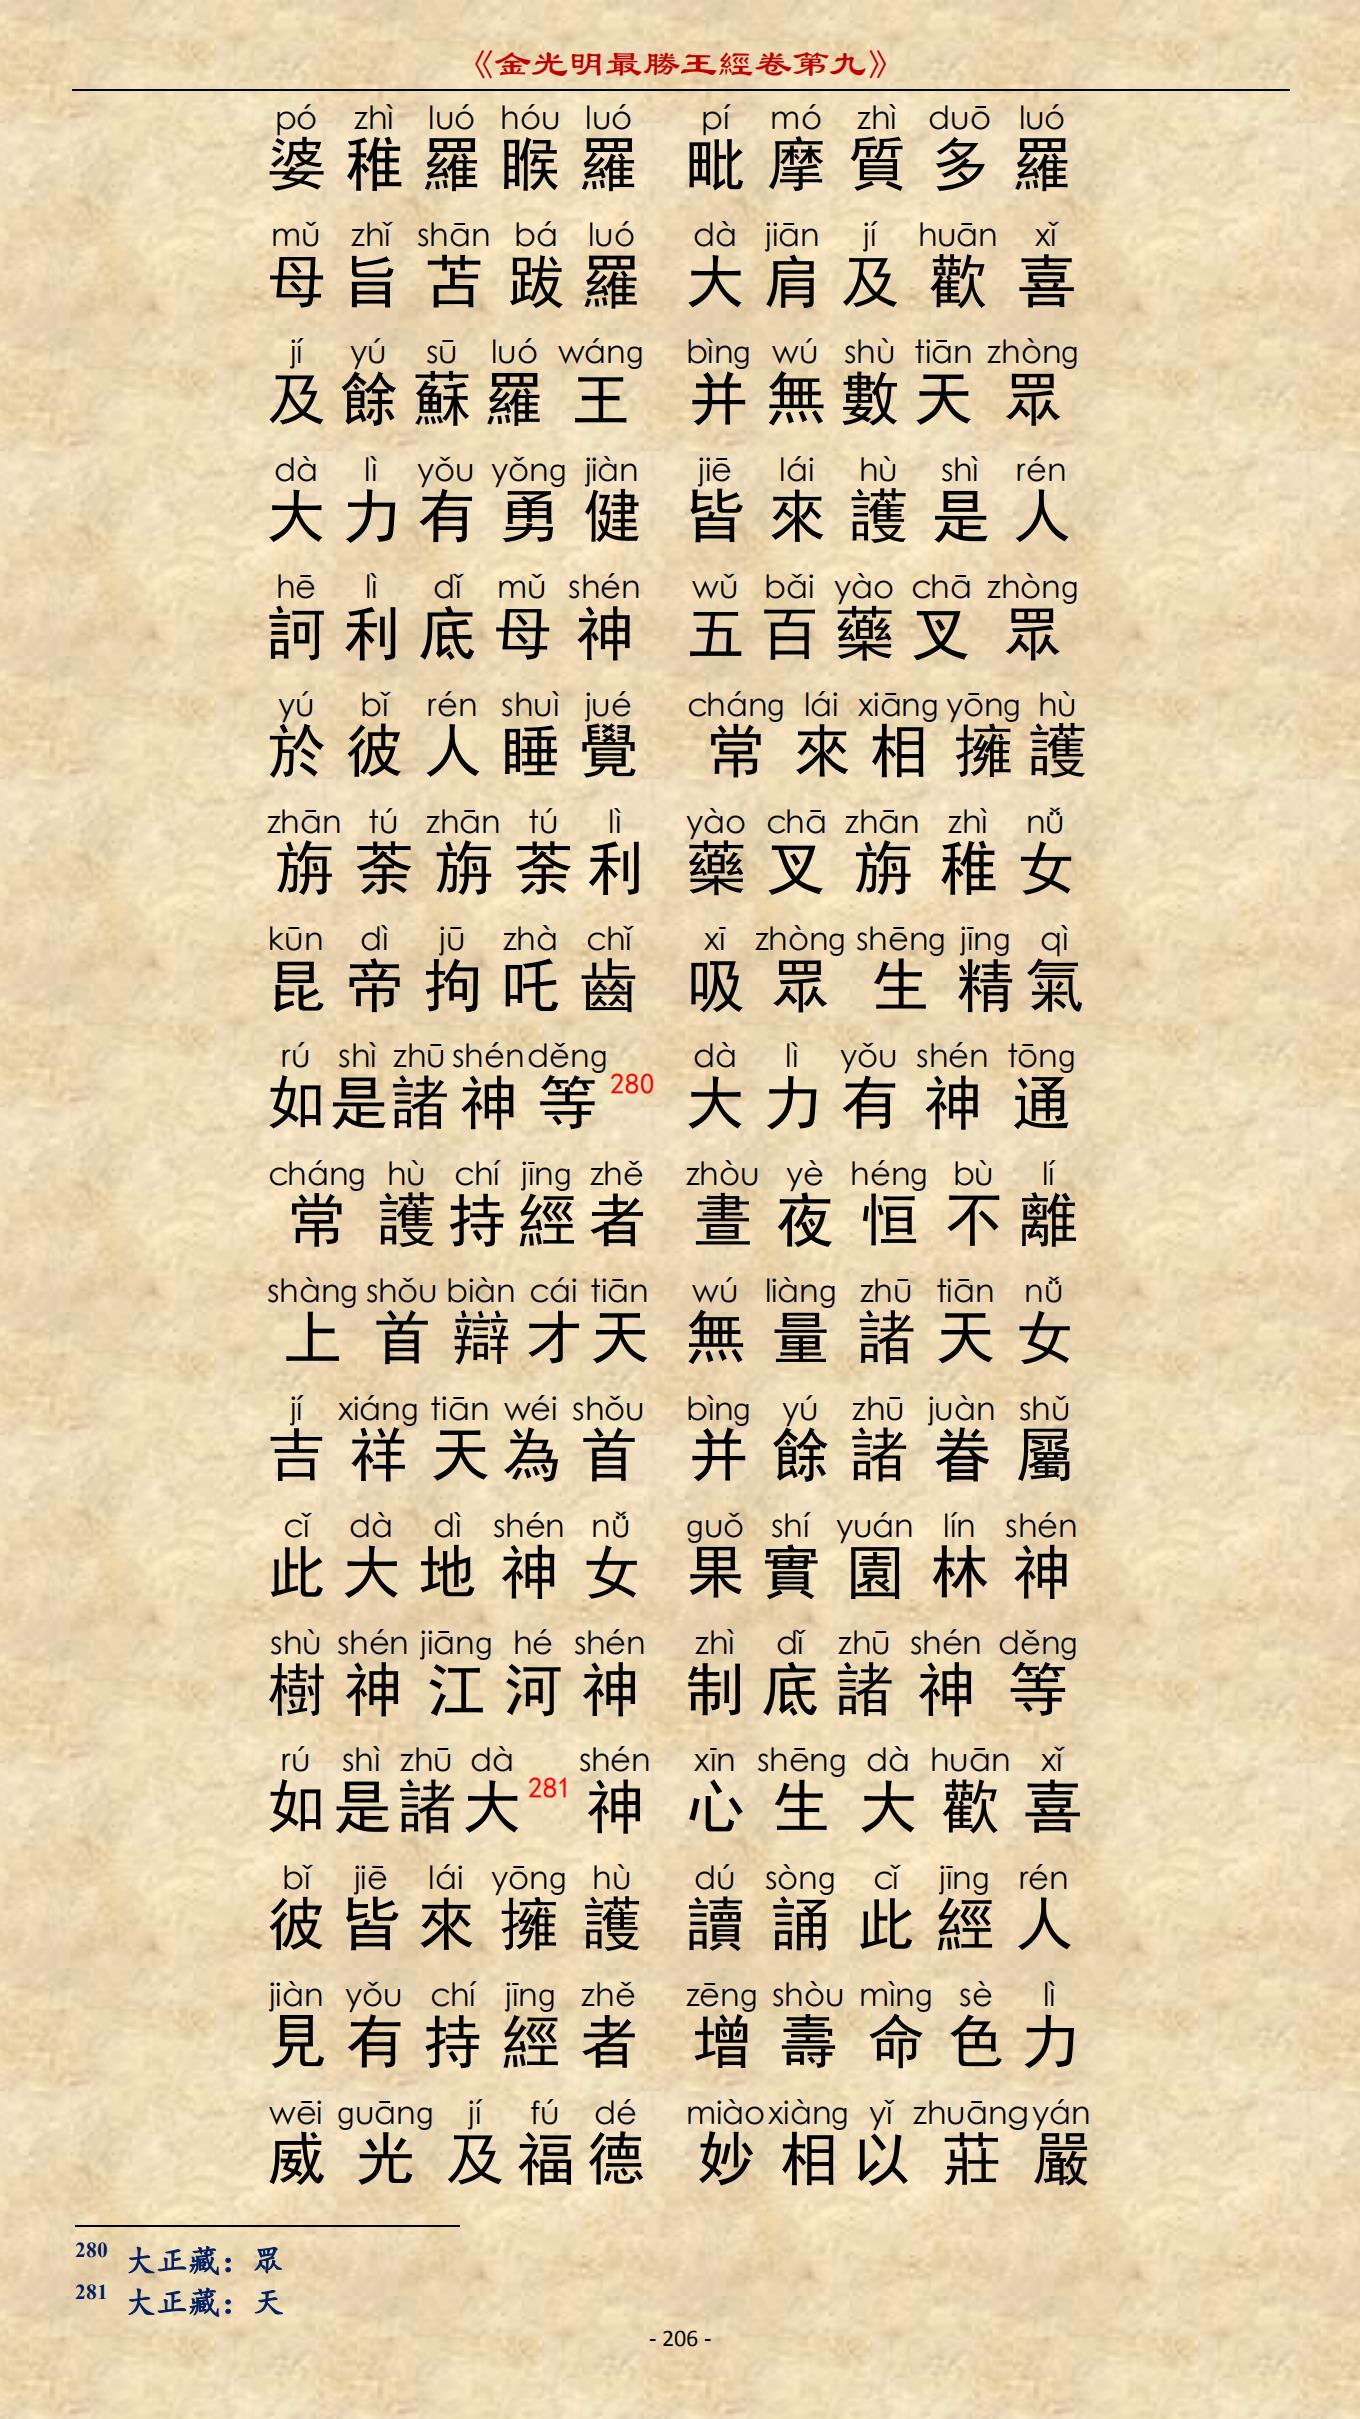 《金光明最勝王經卷第九》
pó zhì luó hóu luó pí mó zhì duō luó
婆稚羅睺羅 毗摩質多羅
mǔ zhǐ shān bá luó dà jiān jí huān xǐ
母旨苫跋羅 大肩及歡喜
jí yú sū luó wáng bìng wú shù tiān zhòng
及餘蘇羅王 并無數天眾
dà lì yǒu yǒng jiàn jiē lái hù shì rén
大力有勇健 皆來護是人
hē lì dǐ mǔ shén wǔ bǎi yào chā zhòng
訶利底母神 五百藥叉眾
yú bǐ rén shuì jué cháng lái xiāng yōng hù
於彼人睡覺 常來相擁護
zhān tú zhān tú lì yào chā zhān zhì nǚ
旃荼旃荼利 藥叉旃稚女
kūn dì jū zhà chǐ xī zhòng shēng jīng qì
昆帝拘吒齒 吸眾生精氣
rú shì zhū shén děng dà lì yǒu shén tōng
如是諸神等280 大力有神通
cháng hù chí jīng zhě zhòu yè héng bù lí
常護持經者 晝夜恒不離
shàng shǒu biàn cái tiān wú liàng zhū tiān nǚ
上首辯才天 無量諸天女
jí xiáng tiān wéi shǒu bìng yú zhū juàn shǔ
吉祥天為首 并餘諸眷屬
cǐ dà dì shén nǚ guǒ shí yuán lín shén
此大地神女 果實園林神
shù shén jiāng hé shén zhì dǐ zhū shén děng
樹神江河神 制底諸神等
rú shì zhū dà shén xīn shēng dà huān xǐ
如是諸大281神 心生大歡喜
bǐ jiē lái yōng hù dú sòng cǐ jīng rén
彼皆來擁護 讀誦此經人
jiàn yǒu chí jīng zhě zēng shòu mìng sè lì
見有持經者 增壽命色力
wēi guāng jí fú dé miào xiàng yǐ zhuāng yán
威光及福德 妙相以莊嚴
280 大正藏：眾
281 大正藏：天
- 206 -